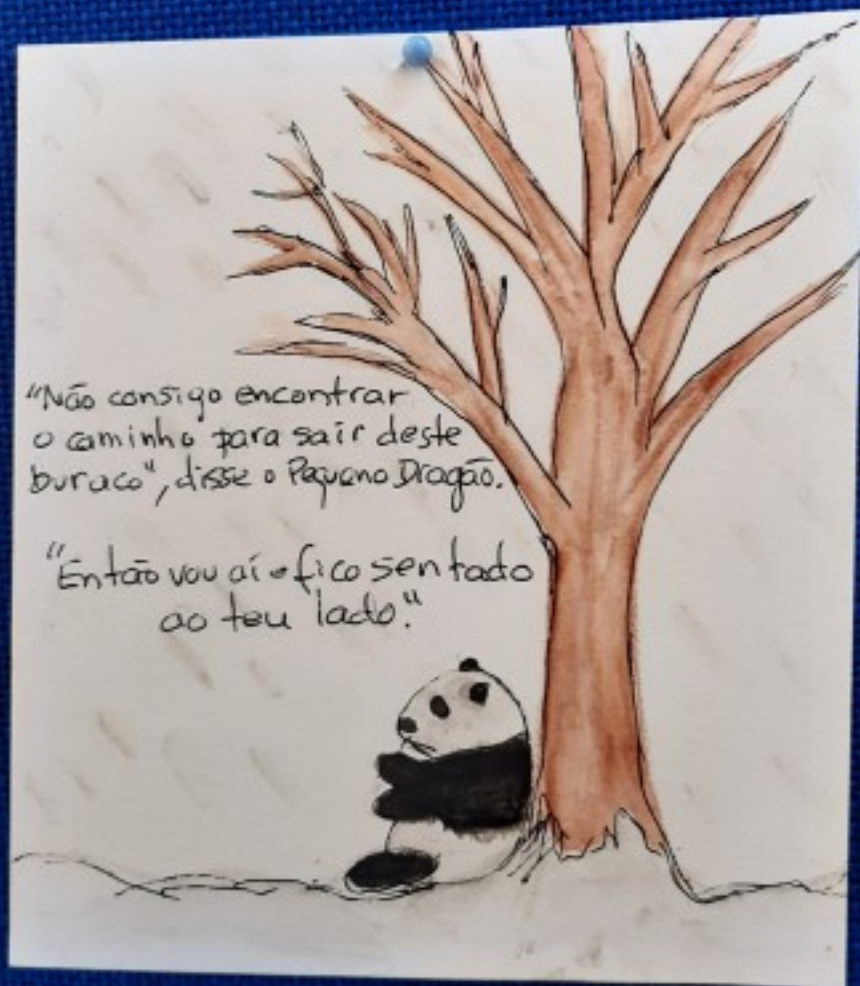 "Não consigo encontrar
o caminho para sair deste
buraco", disse o Pequeno Dragão.
"Então vou aí e fico sentado
ao teu lado."